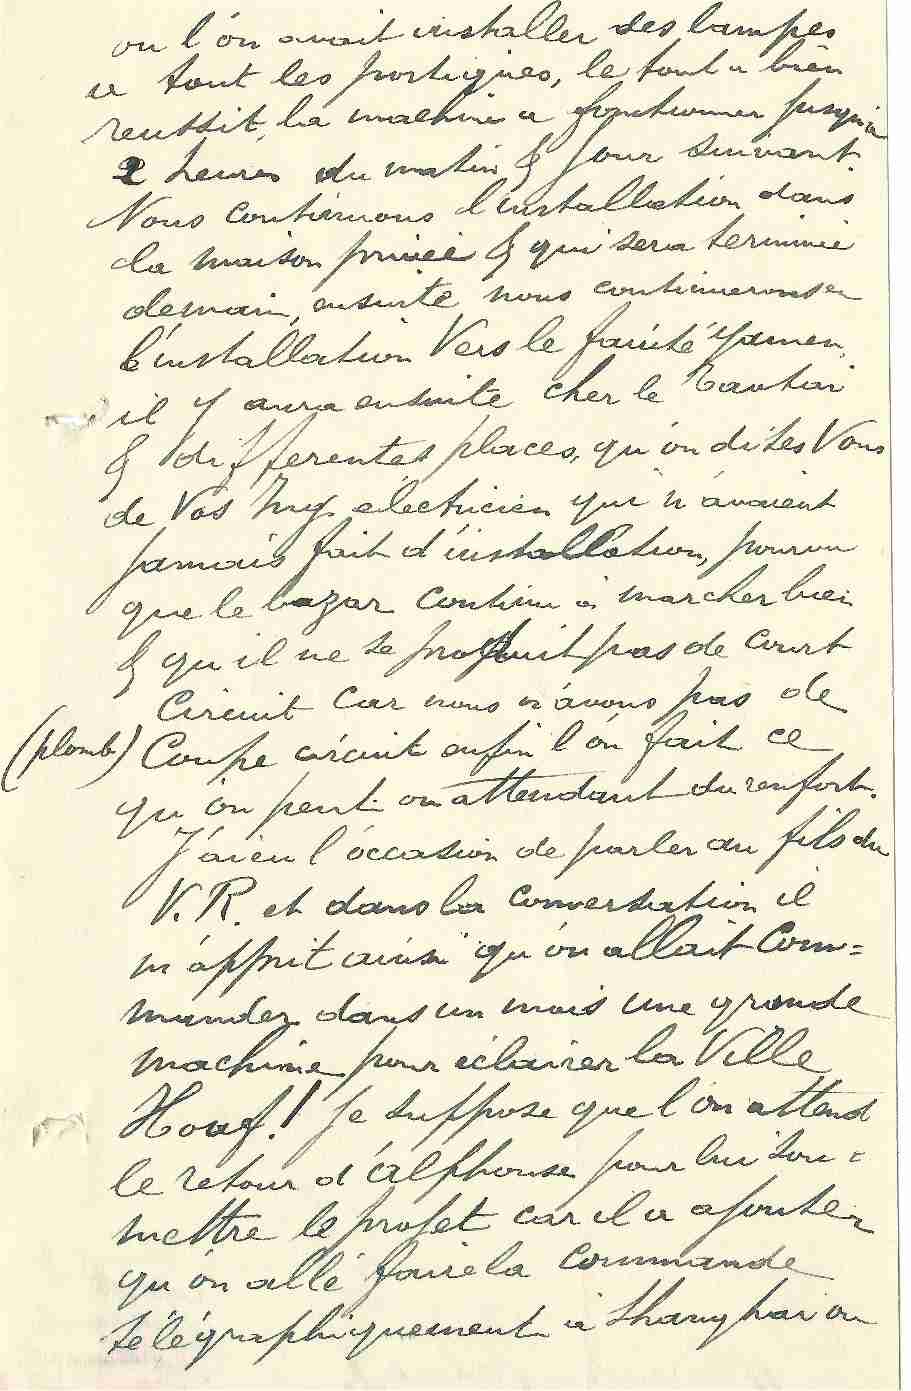 ou l'on avait installer des lampes
a tout les portiques, le tout a bien
reussit, la machine a fonctionner jusqu'a
2 heures du matin & jour suivant
Nous continuons l'installation dans
la maison privée & qui sera terminée
demain, ensuite nous continuerons en
l'installation Vers le Yamen,
il y aura ensuite cher le Taoutai
& differentes places, qu'on dites Vous
de Vos Ing. electricien qui n'avaient
jamais fait d'installation, pourvu
que le bazar continu à marcher bien
& qu il ne se produit pas de court
Circuit car nous n'avons pas de
(plomb) Coupe circuit enfin l'on fait ce
qu'on peut on attendant du renfort.
J'ai eu l'occasion de parler au fils du
V. R. et dans la conversation il
m'apprit ainsi qu'on allait Com=
mander dans un mois une grande
machine pour éclairer la Ville
Houf! je suppose que l'on attend
le retour d'Alphonse pour lui sou=
mettre le projet car il a ajouter
qu'on allé faire la commande
télégraphiquement à Shanghai ou